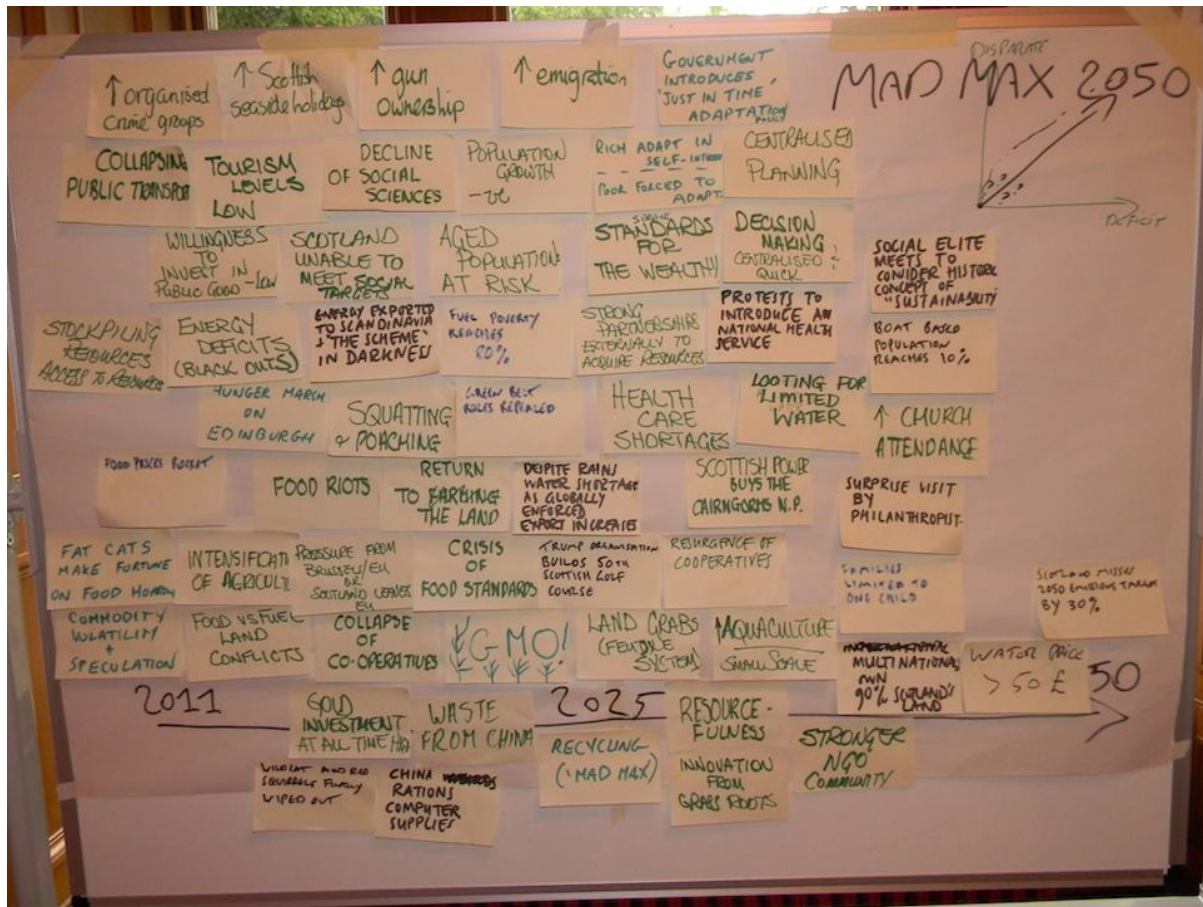 DISPARATE
MAD MAX 2050
DEFICIT
↑ organised
crime groups
↑ Scottish
seaside holidays
↑ gun
ownership
↑ emigration
GOVERNMENT
INTRODUCES
'JUST IN TIME'
ADAPTATION
COLLAPSING
PUBLIC TRANSPORT
TOURISM
LEVELS
LOW
DECLINE
OF SOCIAL
SCIENCES
POPULATION
GROWTH
-ve
RICH ADAPT IN
SELF-INTEREST
POOR FORCED TO
ADAPT
CENTRALISED
PLANNING
WILLINGNESS
TO
INVEST IN
PUBLIC GOOD - LOW
SCOTLAND
UNABLE TO
MEET SOCIAL
TARGETS
AGED
POPULATION
AT RISK
STANDARDS
FOR
THE WEALTHY
DECISION
MAKING
CENTRALISED
QUICK
SOCIAL ELITE
MEETS TO
CONIDER HISTORIC
CONCEPT OF
"SUSTAINABILITY
STOCKPILING
RESOURCES
ACCESS TO RESOURCES
ENERGY
DEFICITS
(BLACK OUTS)
ENERGY EXPORTED
TO SCANDINAVIA
& 'THE SCHEME'
IN DARKNESS
FUEL POVERTY
REACHES
80%
STRONG
PARTNERSHIPS
EXTERNALLY TO
ACQUIRE RESOURCES
PROTESTS TO
INTRODUCE A
NATIONAL HEALTH
SERVICE
BOAT BASED
POPULATION
REACHES 10%
HUNGER MARCH
ON
EDINBURGH
SQUATTING
& POACHING
GREEN BELT
RULES REPEALED
HEALTH
CARE
SHORTAGES
LOOTING FOR
LIMITED
WATER
↑ CHURCH
ATTENDANCE
FOOD PRICES ROCKET
FOOD RIOTS
RETURN
TO
THE LAND
DESPITE RAINS
WATER SHORTAGE
AS GLOBALLY
ENFORCED
EXPORT INCREASES
SCOTTISH POWER
BUYS THE
CAIRNGORMS N.P.
SURPRISE VISIT
BY
PHILANTHROPIST.
FAT CATS
MAKE FORTUNE
ON FOOD HOARDING
INTENSIFICATI
OF AGRICULT
PRESSURE FROM
BRUSSELS/EU
OR
SCOTLAND LEAVES
EU
CRISIS
OF
FOOD STANDARDS
TRUMP ORGANISATION
BUILDS 50TH
SCOTTISH GOLF
COURSE
RESURGENCE OF
COOPERATIVES
FAMILIES
LIMITED TO
ONE CHILD
SCOTLAND MISSES
2050 EMISSIONS TARGET
BY 30%
COMMODITY
VOLATILITY
+
SPECULATION
FOOD VS FUEL
LAND
CONFLICTS
COLLAPSE
OF
CO-OPERATIVES
GMO!
LAND GRABS
(FEUDLE
SYSTEM)
↑ AQUACULTURE
SMALL SCALE
MULTINATIONAL
OWN
90% SCOTLAND'S
LAND
WATER PRICE
> 50 £
2011
2025
50
GOLD
INVESTMENT
AT ALL TIME HIGH
WASTE
FROM CHINA
RESOURCE-
FULNESS
RECYCLING
('MAD MAX)
INNOVATION
FROM
GRASS ROOTS
STRONGER
NGO
COMMUNITY
WILDCAT AND RED
SQUIRRELS FINALLY
WIPED OUT
CHINA
RATIONS
COMPUTER
SUPPLIES